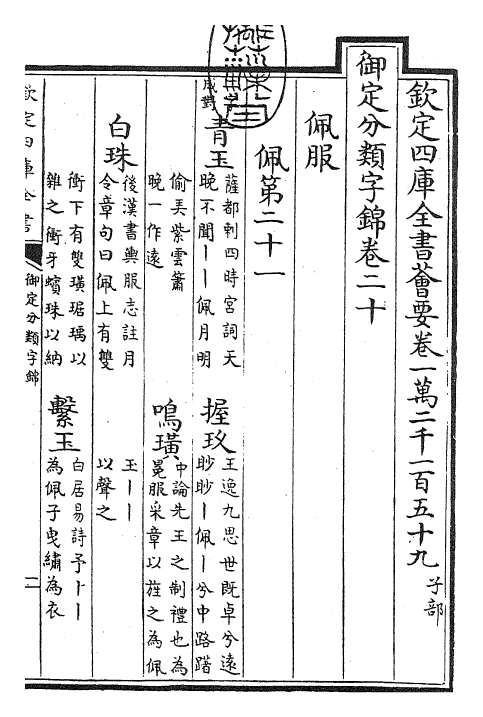 欽定四庫全書薈要卷一萬二千一百五十九 子部
御定分類字錦卷二十
佩服
佩第二十一
成對
青玉 薩都剌四時宮詞天
晚不聞丨丨佩月明
偷弄紫雲簫
晚一作遠
握玖 王逸九思世既卓兮遠
眇眇丨佩丨兮中路躇
鳴璜 中論先王之制禮也為
冕服采章以旌之為佩
玉丨丨
以聲之
白珠 後漢書輿服志註月
令章句曰佩上有雙
衡下有雙璜琚瑀以
雜之衝牙蠙珠以納
繫玉 白居易詩予卜丨丨
為佩子曳繡為衣
欽定四庫全書
御定分類字錦
一